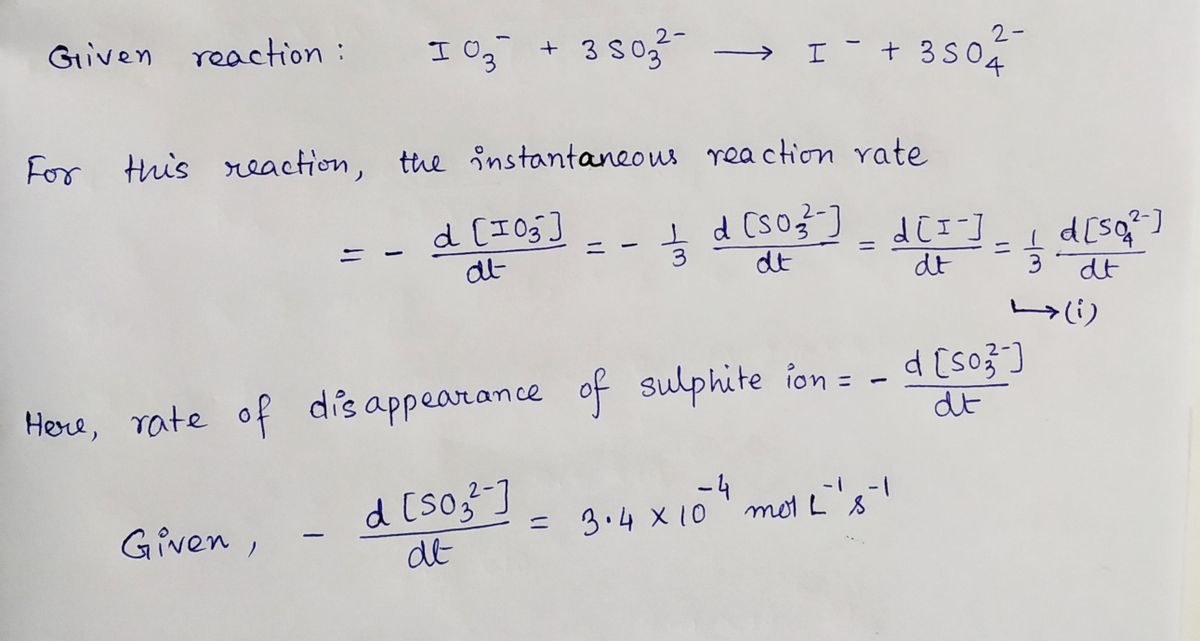 Given reaction : IO₃⁻ + 3SO₃²⁻ ⟶ I⁻ + 3SO₄²⁻
For this reaction, the instantaneous reaction rate
= - d[IO₃⁻]/dt = - 1/3 d[SO₃²⁻]/dt = d[I⁻]/dt = 1/3 d[SO₄²⁻]/dt
↳(i)
Here, rate of disappearance of sulphite ion = - d[SO₃²⁻]/dt
Given, - d[SO₃²⁻]/dt = 3.4 × 10⁻⁴ mol L⁻¹s⁻¹